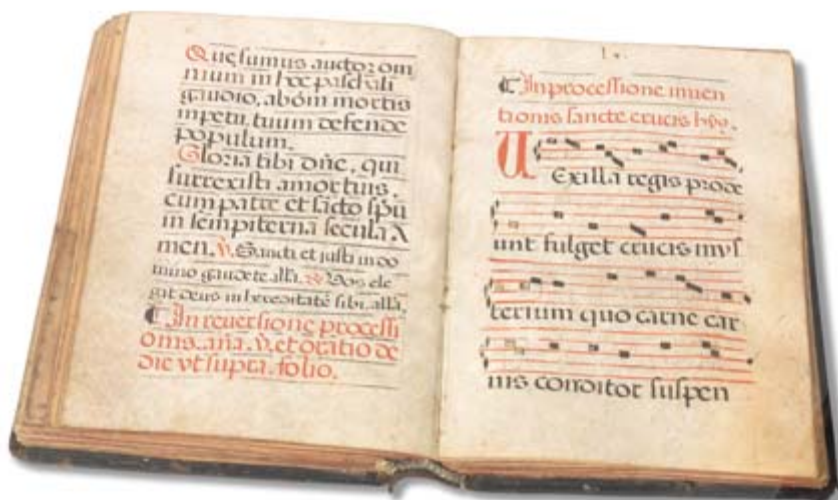 Quesumus auctor om
nium in hoc paschali
gaudio, ab om̄i mortis
impetu, tuum defende
populum.
Gloria tibi dn̄e, qui
surrexisti a mortuis,
cum patre et sācto spū
in sempiterna secula A
men. ℣. Sancti et justi in do
mino gaudete alla. ℟. Vos ele
git deus in hereditatē sibi, alla,
In reversione processi
onis, añā. ℣. et oratio de
die vt supra. folio.
In processione inuen
tionis sancte crucis
UExilla regis prode
unt fulget crucis mys
terium quo carne car
nis conditor suspen